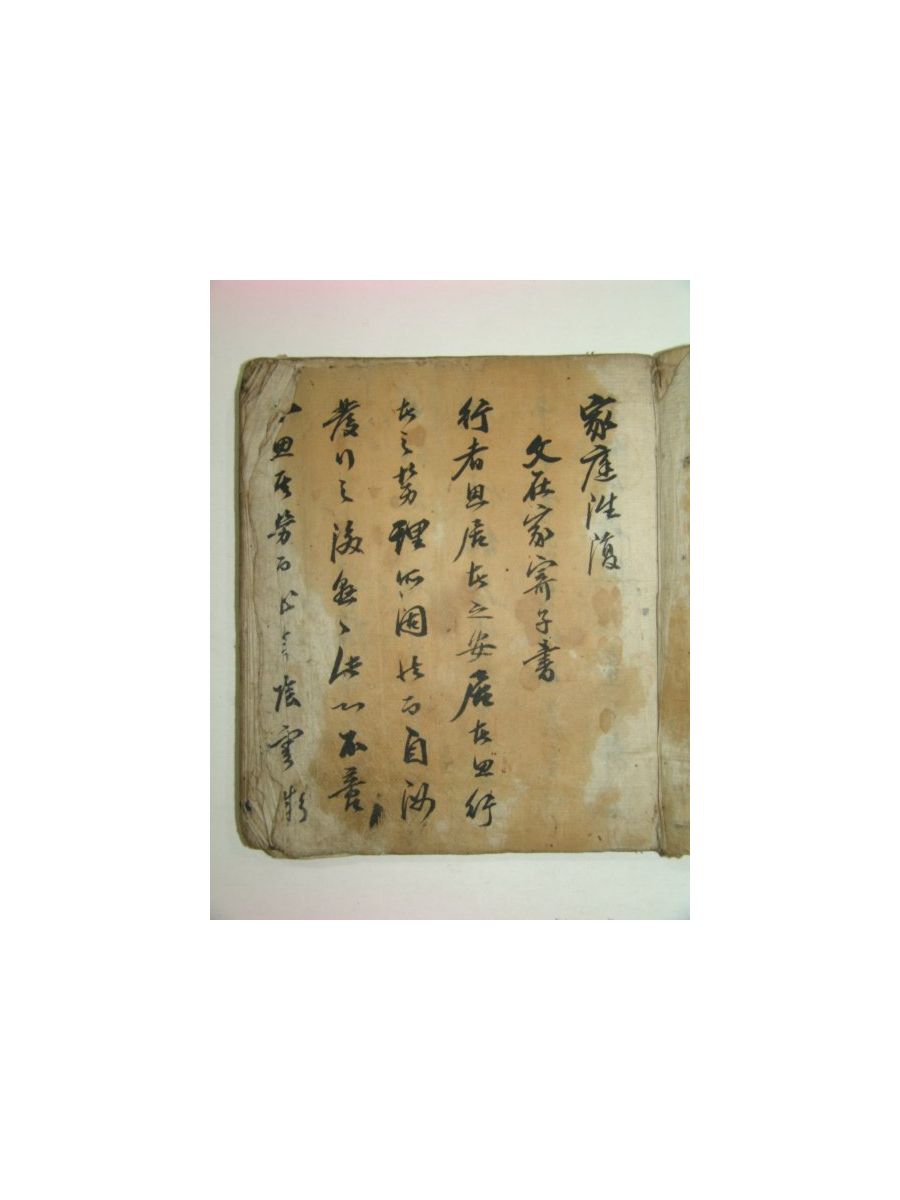 家庭往復
父在家寄子書
行者思居者之安居者思行
者之勞理所固然而自汝
發行之後無〻決心不啻
思居勞而 陰雲